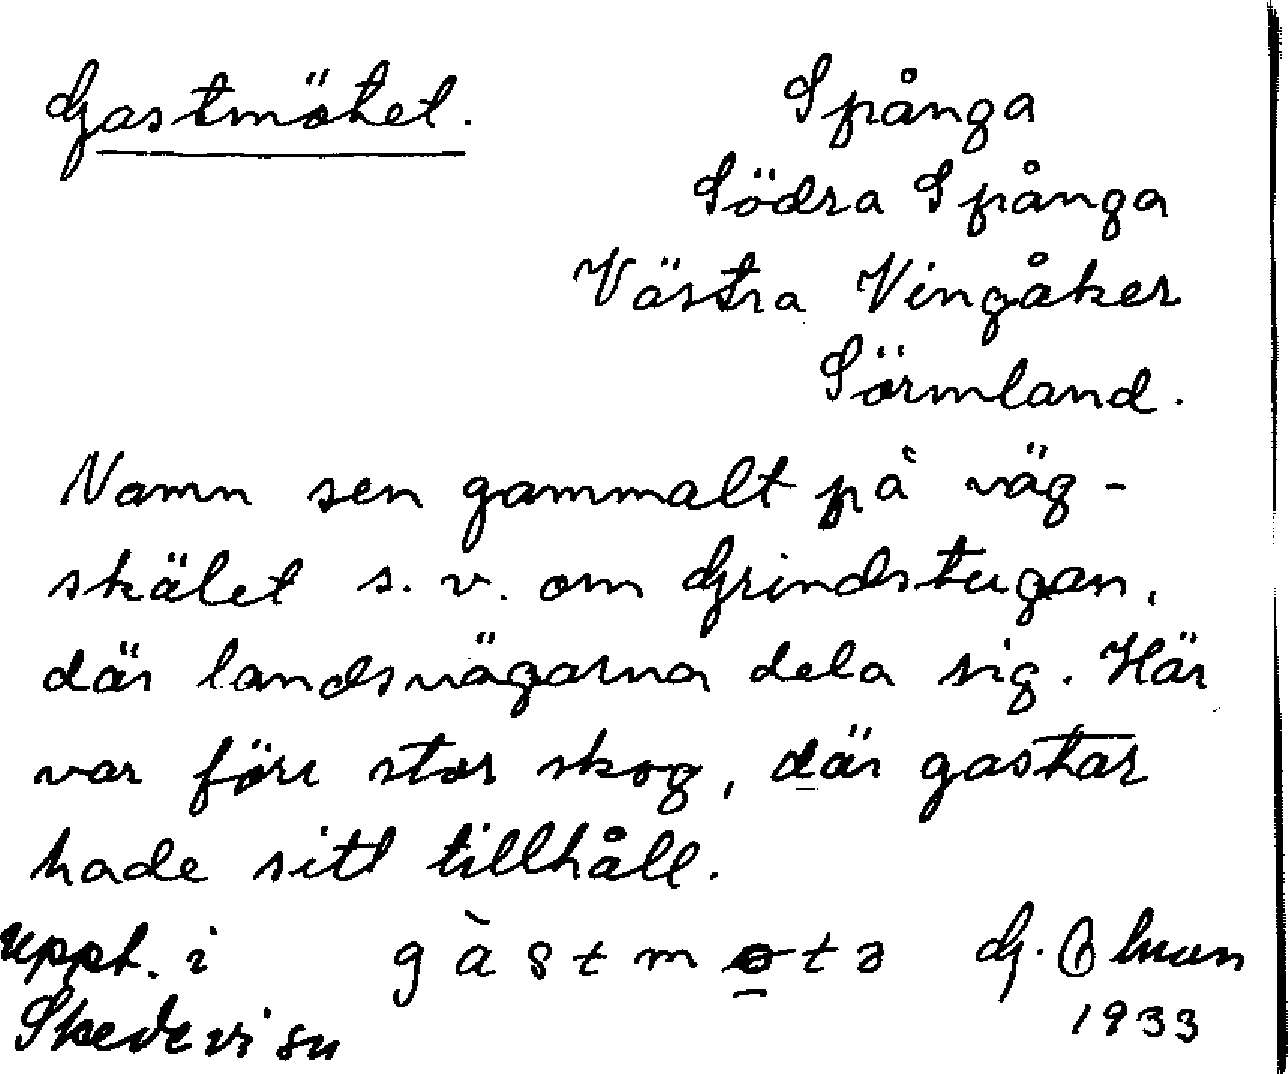 Gastmötet.
Spånga
Södra Spånga
Västra Vingåker
Sörmland.
Namn sen gammalt på väg-
skälet s. v. om Grindstugan,
där landsvägarna dela sig. Här
var förr stor skog, där gastar
hade sitt tillhåll.
Uppt. i
Skedevi sn
gàstmøtə
G. Ohman
1933